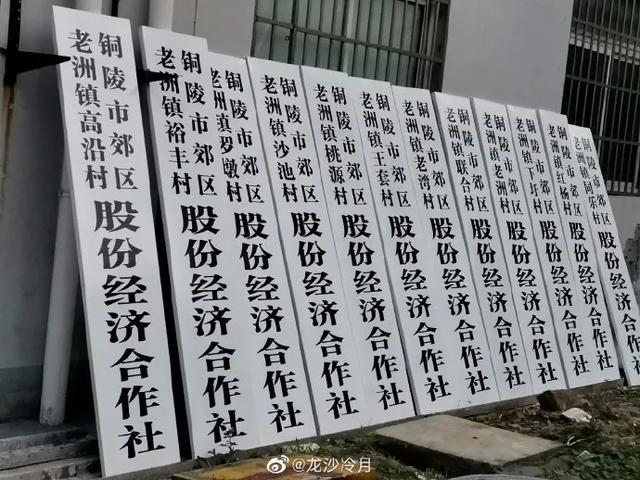 铜陵市郊区
老洲镇高沿村
股份经济合作社
铜陵市郊区
老洲镇裕丰村
股份经济合作社
铜陵市郊区
老洲镇罗墩村
股份经济合作社
铜陵市郊区
老洲镇沙池村
股份经济合作社
铜陵市郊区
老洲镇桃源村
股份经济合作社
铜陵市郊区
老洲镇王套村
股份经济合作社
铜陵市郊区
老洲镇老湾村
股份经济合作社
铜陵市郊区
老洲镇联合村
股份经济合作社
铜陵市郊区
老洲镇老洲村
股份经济合作社
铜陵市郊区
老洲镇下圩村
股份经济合作社
铜陵市郊区
老洲镇红杨村
股份经济合作社
铜陵市郊区
老洲镇同乐村
股份经济合作社
@龙沙冷月